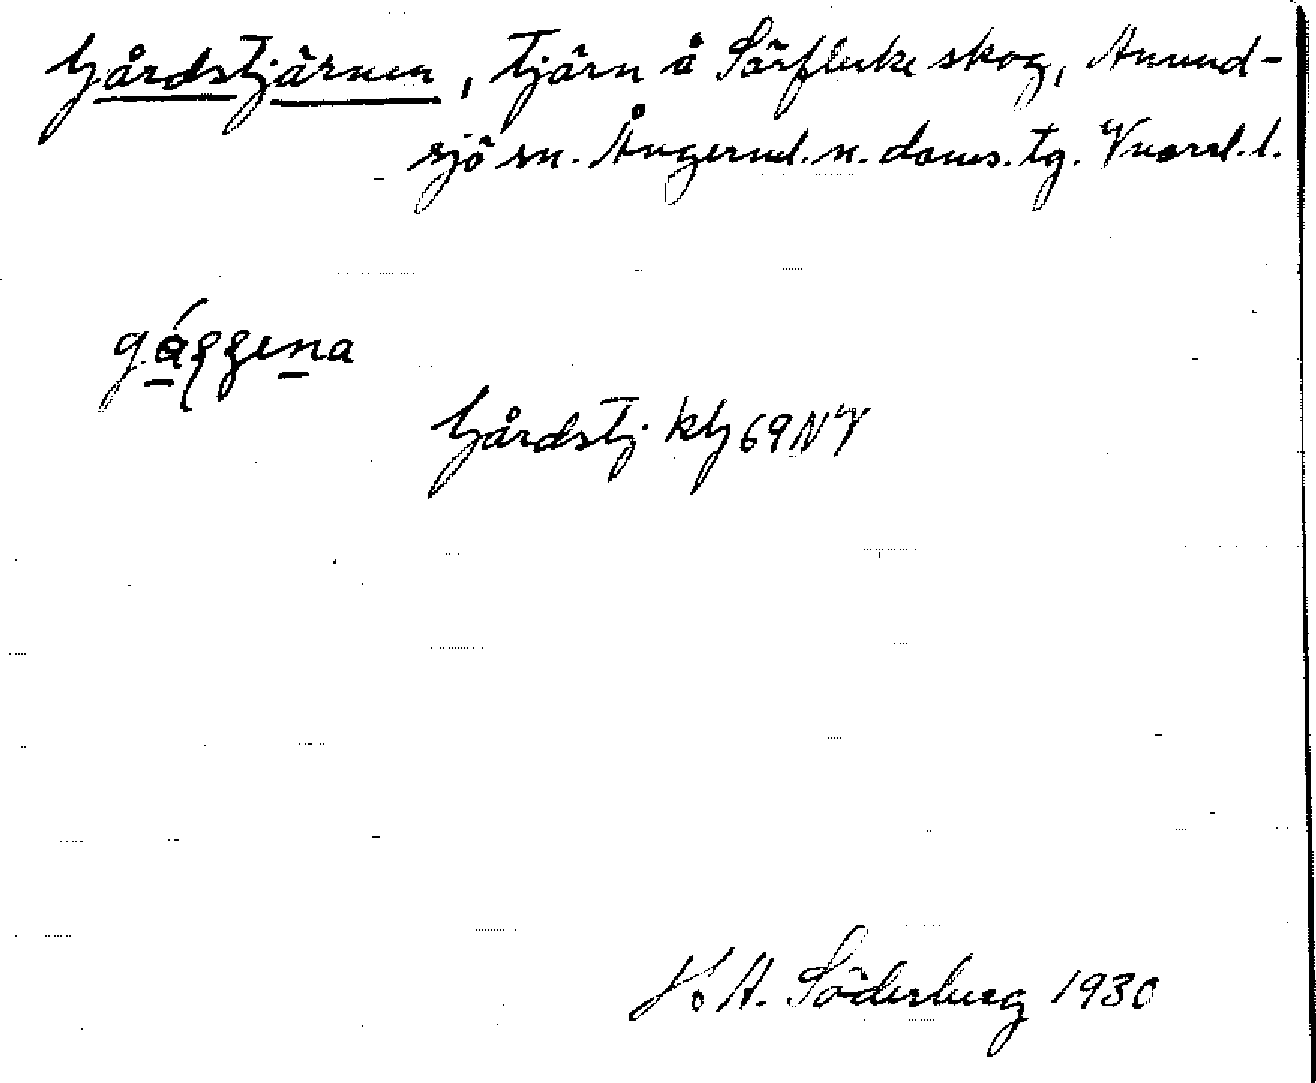 Gårdstjärnen, tjärn å Sörflärke skog, Anund-
sjö sn. Ångerml. n. doms. tg. Vnorrl. l.
Gårdstj. kbl 69 NV
K. A. Söderberg 1930